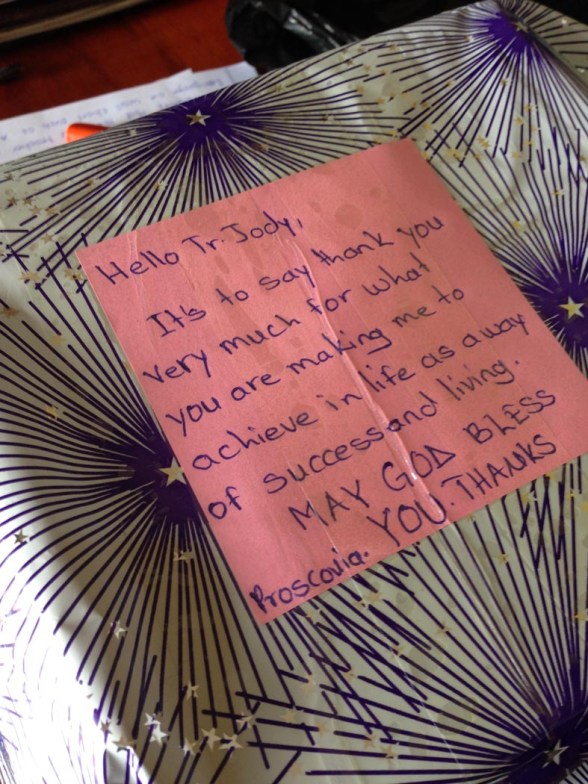 Hello Tr. Jody,
It's to say thank you
very much for what
you are making me to
achieve in life as away
of success and living.
MAY GOD BLESS
YOU. THANKS
Proscovia.